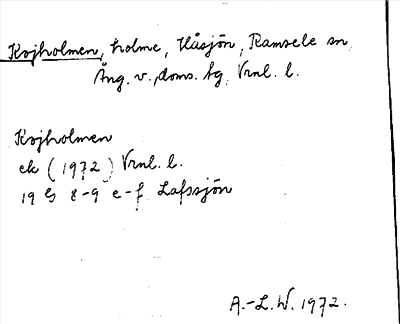 Kojholmen, holme, Håsjön, Ramsele sn,
Ång. v., doms. tg. Vrnl. l.
Kojholmen
ek (1972) Vrnl. l.
19 G 8-9 e-f Lafssjön
A.-L.W. 1972.